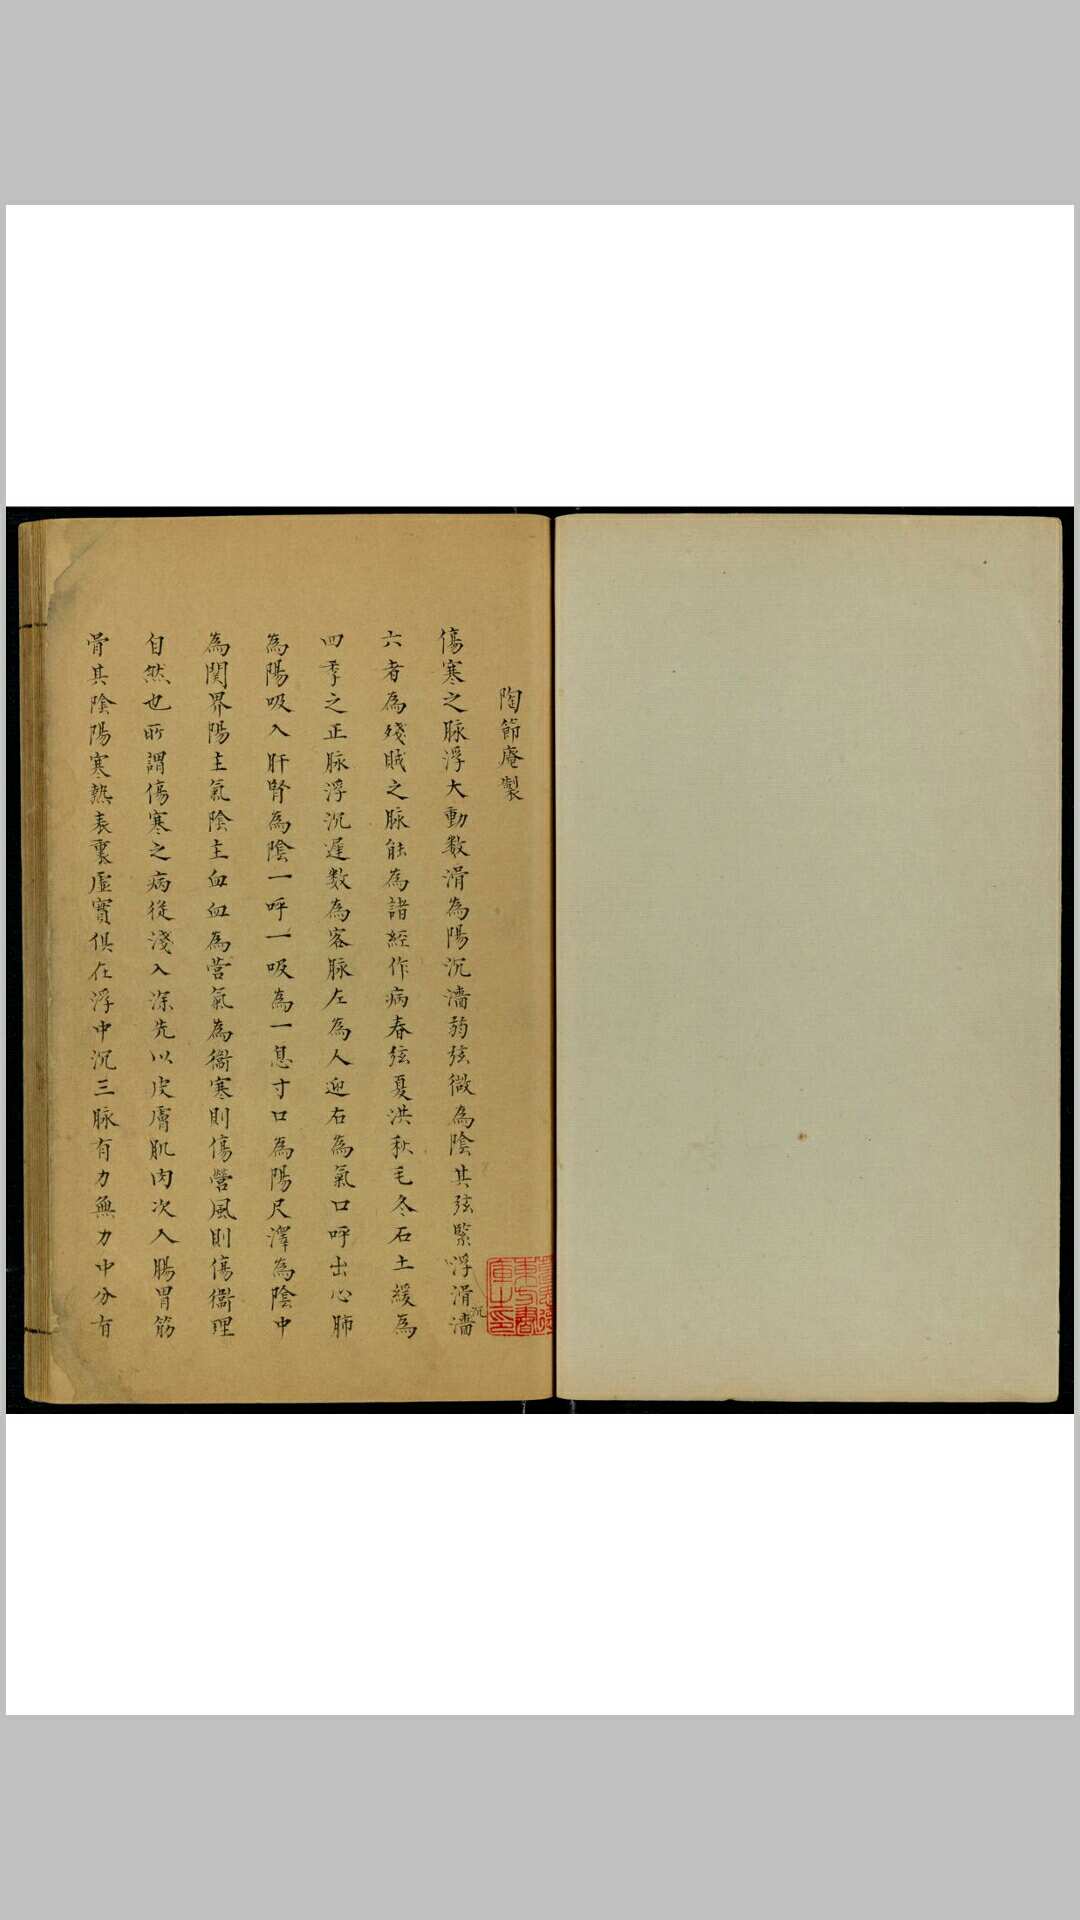 陶節庵製
傷寒之脉浮大動数滑為陽沉濇弱弦微為陰其弦緊浮滑濇
沉
六者為殘賊之脉能為諸經作病春弦夏洪秋毛冬石土緩為
四季之正脉浮沉遲数為客脉左為人迎右為氣口呼出心肺
為陽吸入肝腎為陰一呼一吸為一息寸口為陽尺澤為陰中
為関界陽主氣陰主血血為营氣為衛寒則傷營風則傷衛理
自然也所謂傷寒之病從淺入深先以皮膚肌肉次入腸胃筋
骨其陰陽寒熱表裏虛實俱在浮中沉三脉有力無力中分有